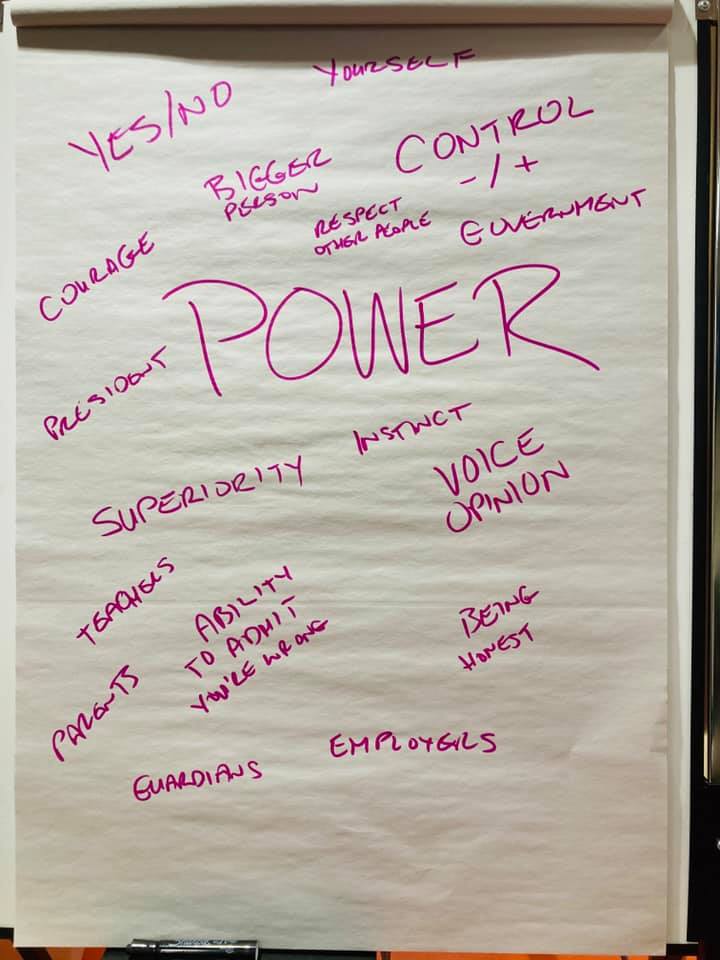 YOURSELF
YES/NO
CONTROL
- / +
BIGGER
PERSON
RESPECT
OTHER PEOPLE
GOVERNMENT
COURAGE
POWER
PRESIDENT
INSTINCT
VOICE
OPINION
SUPERIORITY
TEACHERS
ABILITY
TO ADMIT
YOU'RE WRONG
BEING
HONEST
PARENTS
EMPLOYERS
GUARDIANS